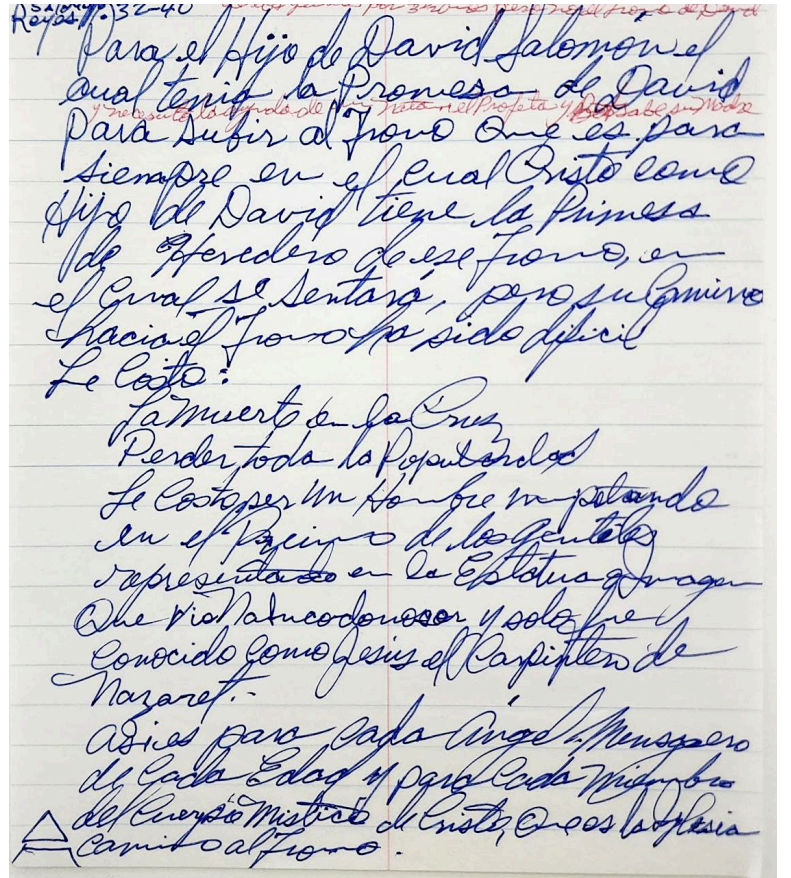 Reyes 1:32-40
Para el Hijo de David Salomón el
cual tenia la Promesa de David
y necesito la ayuda de Natan el Profeta y su Madre
para subir al Trono Que es para
siempre en el cual Cristo como
Hijo de David tiene la Primesa
de Heredero de ese Trono, en
el Cual se sentará, pero su Camino
hacia el Trono ha sido dificil
Le Costo:
La Muerte en la Cruz
Perder toda la Popularidad
Le Costo ser Un Hombre
en el Reino de los gentiles
representado en la Estatua o Imagen
Que vio Nabucodonosor y solo fue
Conocido como Jesus el Carpintero de
Nazaret.-
asi es para cada Ángel Mensajero
de Cada Edad y para Cada Miembro
del Cuerpo Mistico de Cristo, Que es la Iglesia
camino al Trono.